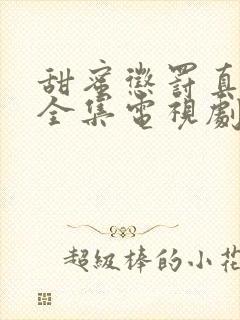 甜蜜懲罰真
全集電視劇
超級棒的小花